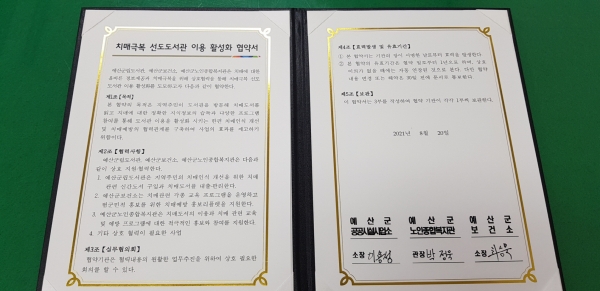 치매극복 선도도서관 이용 활성화 협약서
예산군립도서관, 예산군보건소, 예산군노인종합복지관은 치매에 대한
도서관 이용 활성화를 도모하고자 다음과 같이 협약한다.
제1조【목적】
본 협약의 목적은 지역주민이 도서관을 방문해 치매도서를
읽고 치매에 대한 정확한 지식정보의 습득과 다양한 프로그램
참여를 통해 도서관 이용을 활성화 시키는 한편 치매인식 개선
및 치매예방의 협력관계를 구축하여 사업의 효과를 제고하기
위함이다.
제2조【협약사항】
예산군립도서관, 예산군보건소, 예산군노인종합복지관은 다음과
같이 상호 지원·협력한다.
1. 예산군립도서관은 지역주민의 치매인식 개선을 위한 치매
관련 신간도서 구입과 치매도서를 대출·관리한다.
2. 예산군보건소는 치매관련 각종 교육 프로그램을 운영하고
범군민적 홍보를 위한 치매예방 홍보리플렛을 지원한다.
3. 예산군노인종합복지관은 치매도서의 이용과 치매 관련 교육
및 예방 프로그램에 대한 적극적인 홍보와 참여를 지원한다.
4. 기타 상호 협력이 필요한 사업
제3조【실무협의회】
협약기관은 협력내용의 원활한 업무추진을 위하여 상호 필요한
회의를 할 수 있다.
제4조【효력발생 및 유효기간】
① 본 협약서는 기관의 장이 서명한 날로부터 효력을 발생한다.
② 본 협약의 유효기간은 협약 체결로부터 1년으로 하며, 상호
이의가 없을 때에는 자동 연장된 것으로 본다. 다만 협약
내용 변경 또는 해약은 30일 전에 문서로 통보한다.
제5조【보관】
이 협약서는 3부를 작성하여 협약 기관이 각각 1부씩 보관한다.
2021년 8월 20일
예산군 예산군 예산군
공공시설사업소 노인종합복지관 보건소
소장 관장 박정옥 소장